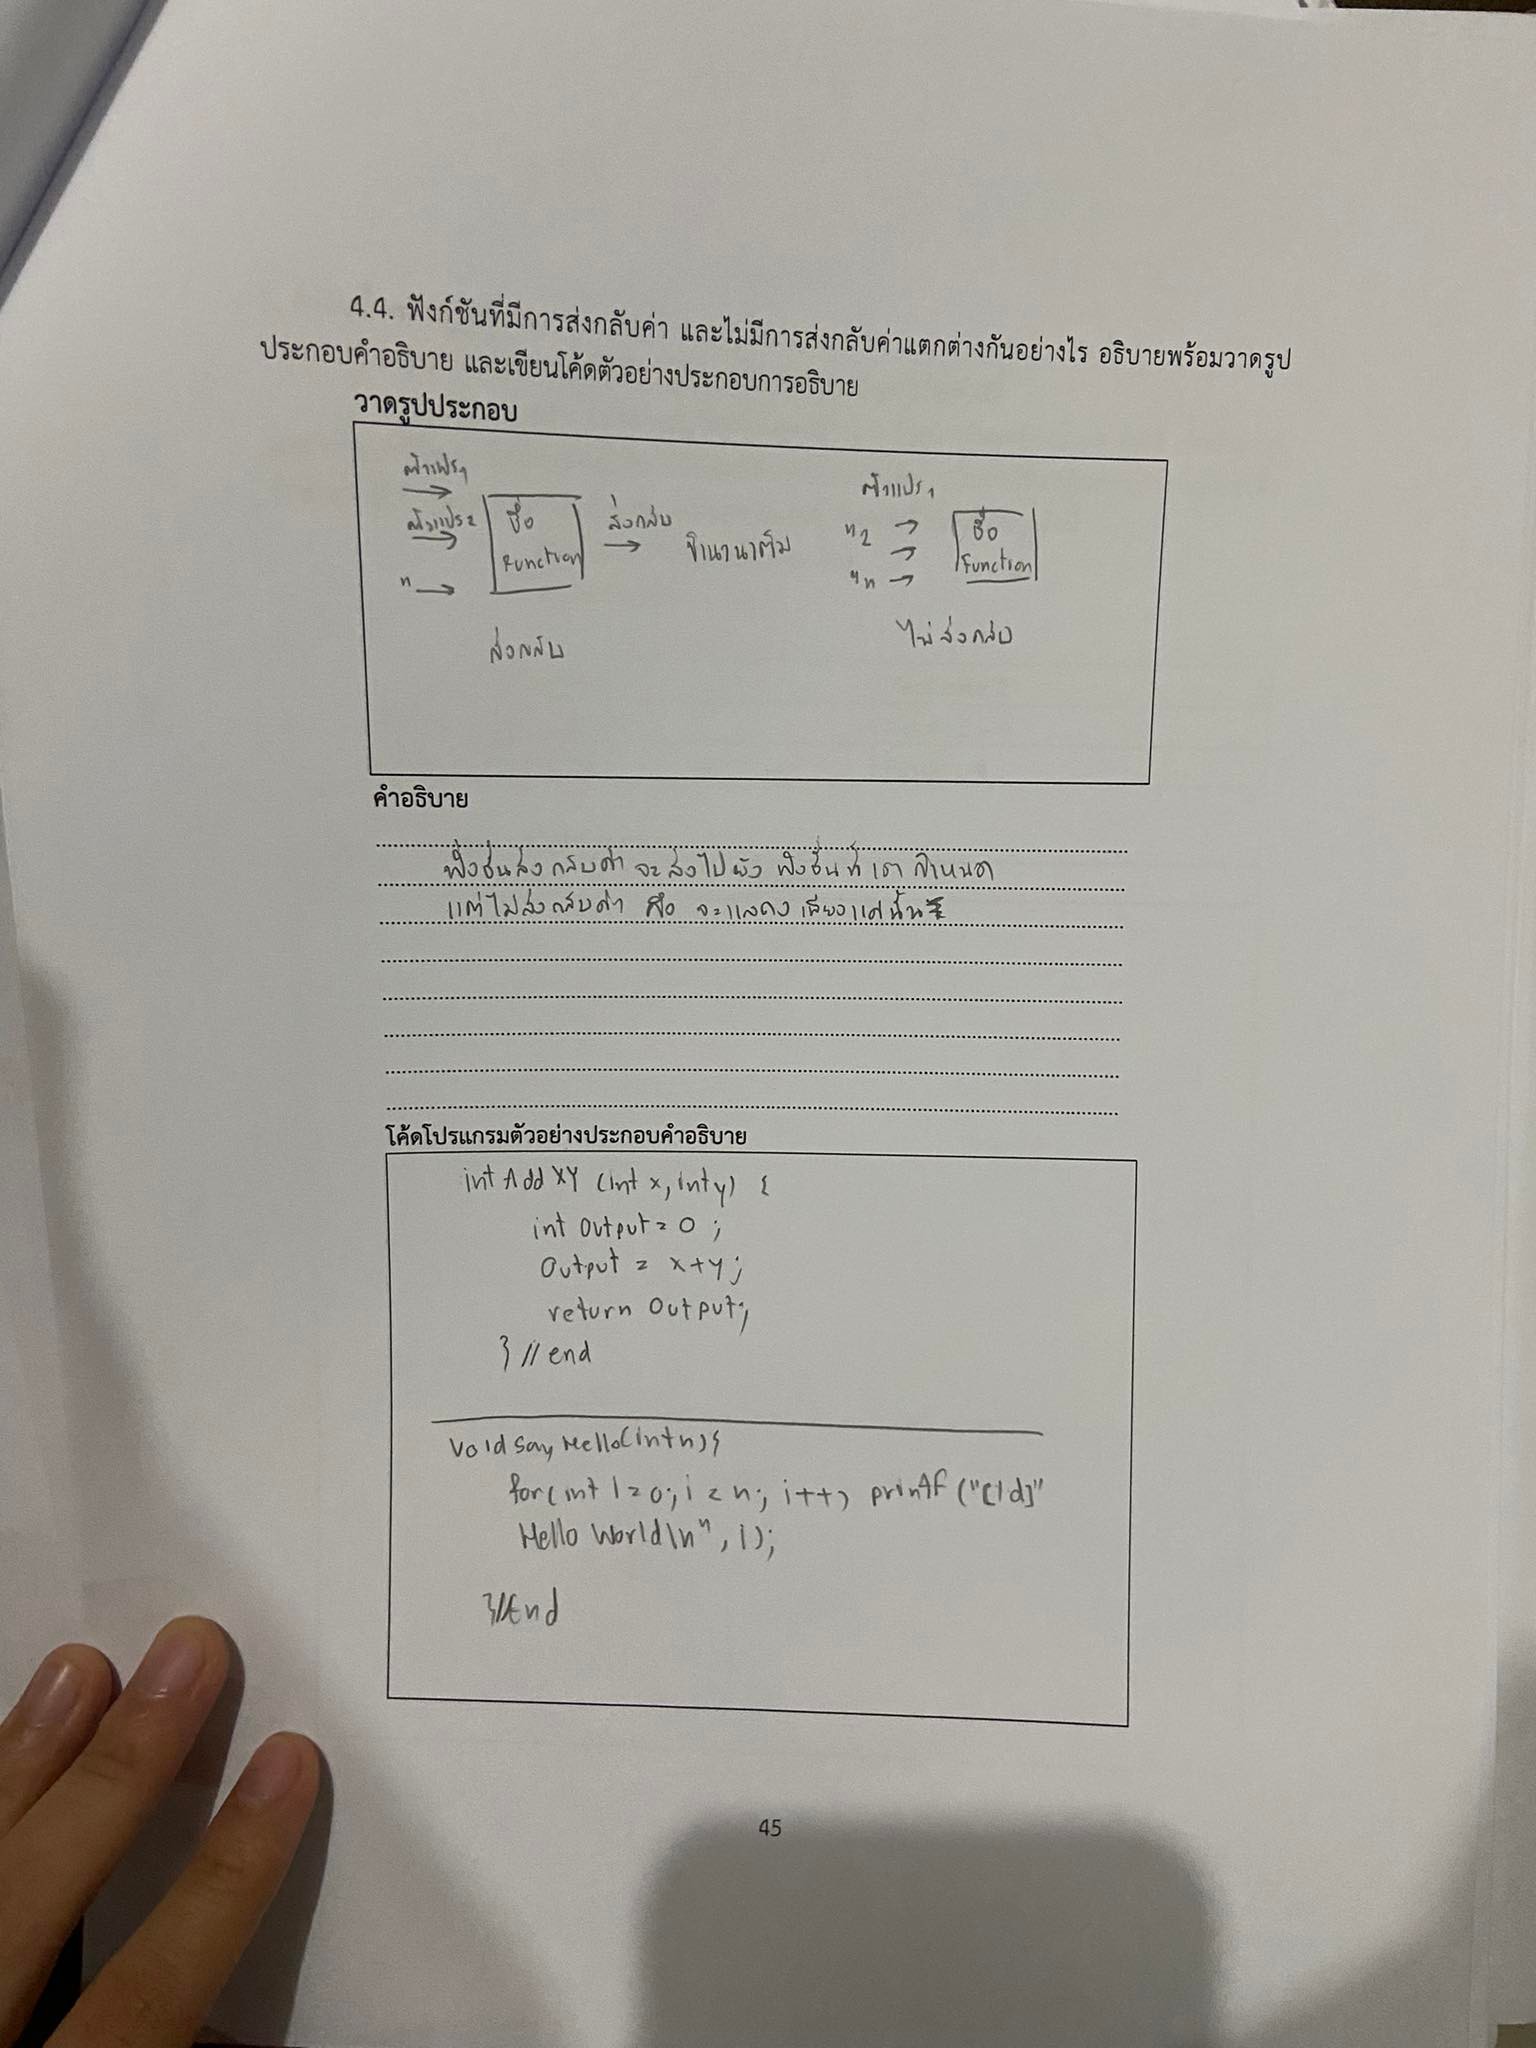 4.4. ฟังก์ชันที่มีการส่งกลับค่า และไม่มีการส่งกลับค่าแตกต่างกันอย่างไร อธิบายพร้อมวาดรูป
ประกอบคำอธิบาย และเขียนโค้ดตัวอย่างประกอบการอธิบาย
วาดรูปประกอบ
ตัวแปร1
ตัวแปร2
n
ชื่อ
Function
ส่งกลับ
ส่งกลับ
ตัวแปร1
"2
"n
ชื่อ
Function
ไม่ส่งกลับ
คำอธิบาย
ฟังชั่นส่งกลับค่า จะส่งไปยัง ฟังชั่นที่เรากำหนด
แต่ไม่ส่งกลับค่า คือ จะแสดงเพียงแค่นั้น
โค้ดโปรแกรมตัวอย่างประกอบคำอธิบาย
int Add XY (int x, int y) {
int Output = 0 ;
Output = x+y;
return Output;
} // end
void say Hello(int n) {
for(int i=0; i < n; i++) printf ("[%d]"
Hello World\n", i);
}//End
45